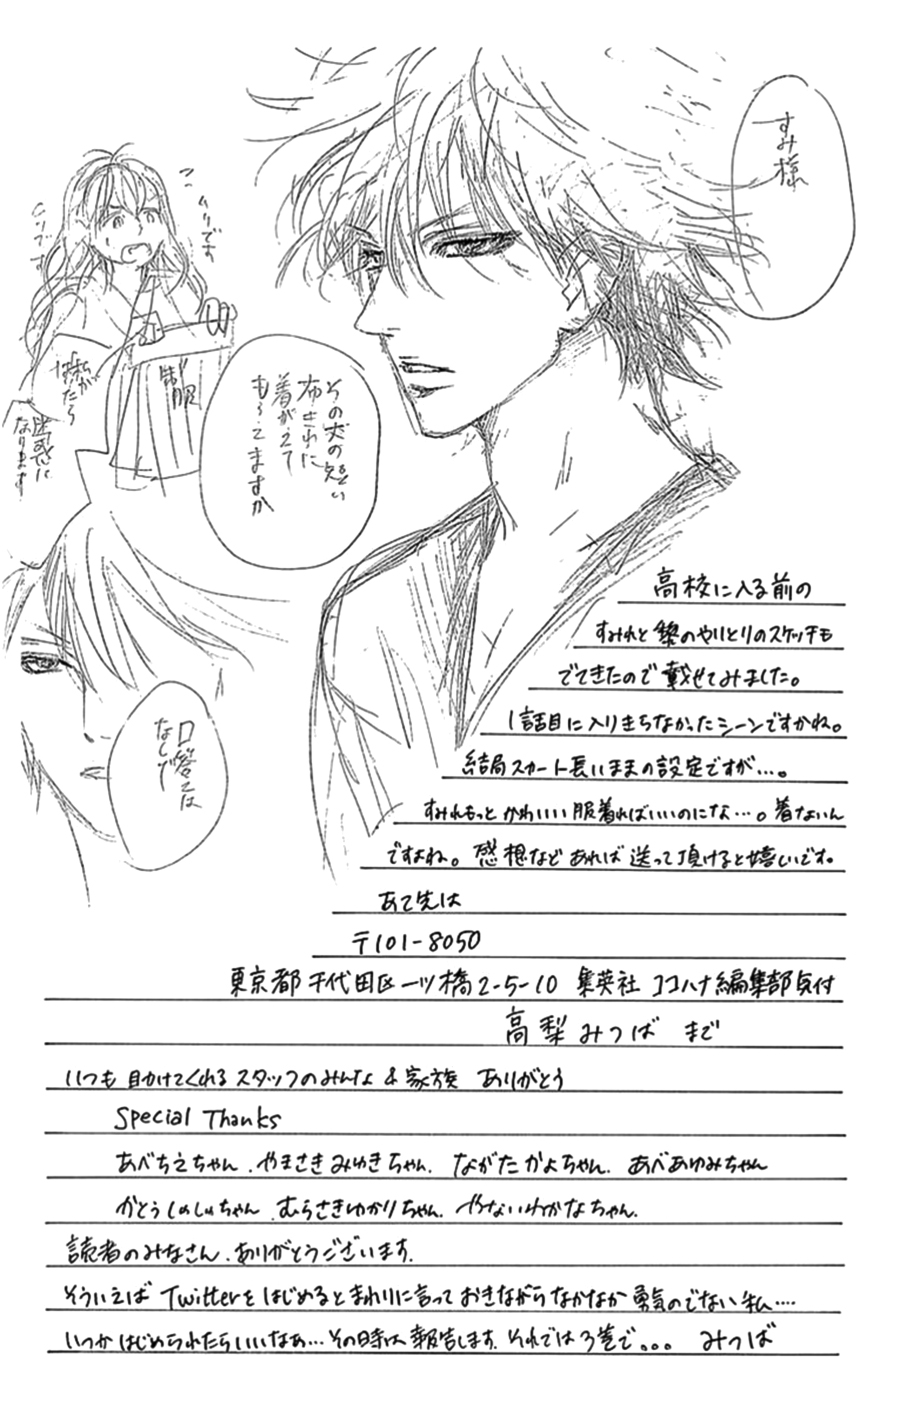 すみ様
その丈の短い
布きれに
着がえて
もらえますか
ムリです
制服
私が
はいたら
迷惑に
なります
口答えは
なしで
高校に入る前の
すみれと黎のやりとりのスケッチも
でてきたので載せてみました。
1話目に入りきらなかったシーンですかね。
結局スカート長いままの設定ですが…。
すみれもっとかわいい服着ればいいのにな…。着ないん
ですよね。感想などあれば送って頂けると嬉しいです。
あて先は
〒101-8050
東京都千代田区一ツ橋2-5-10 集英社 ココハナ編集部気付
高梨みつば まで
いつも助けてくれるスタッフのみんな&家族 ありがとう
Special Thanks
あべちえちゃん.やまさきみゆきちゃん.ながたかよちゃん.あべあゆみちゃん
かとうしのしゅちゃん.むらさきゆかりちゃん.やないわかなちゃん.
読者のみなさん.ありがとうございます.
そういえばTwitterをはじめるとまわりに言っておきながらなかなか勇気のでない私….
いつかはじめられたらいいなぁ…その時は報告します.それでは3巻で... みつば